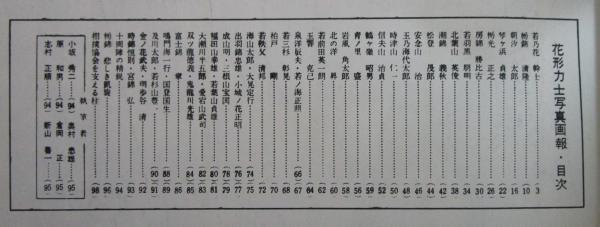 花形力士写真画報・目次
若乃花 幹士 3
栃錦 清隆 10
朝汐 太郎 16
琴ヶ浜 貞雄 22
栃光 正之 26
房錦 勝比古 30
若羽黒 朋明 34
北葉山 英俊 38
潮錦 義秋 42
松登 晟郎 44
安念山 治 46
玉乃海 代太郎 48
時津山 仁一 50
信夫山 治貞 52
鶴ヶ嶺 昭男 54
青ノ里 盛 56
岩風 角太郎 58
北の洋 昇 60
若前田 英一朗 62
玉響 克己 64
泉洋 辰夫・若ノ海 正照 66 67
若三杉 彰晃 68
柏戸 剛 70
若秩父 高邦 72
海山 太郎・大晃 定行 74 75
出羽錦 忠雄・小城ノ花 正昭 76 77
成山 明・三根山 宝国 78 79
福田山 幸雄・若葉山 貞雄 80 81
大瀬川 半五郎・愛宕山 武司 82 83
双ツ龍 徳義・鬼龍川 光雄 84 85
富士錦 章 86
鳴門海 一行・国登 国生 88 89
及川 太郎・若杉山 豊 90 91
金ノ花 武夫・明歩谷 清 92
時錦 恒則・宮錦 浩 93
十両陣の精鋭 94
栃錦 悲しき凱旋 95
相撲協会を支える村 96
執筆者
小坂 秀二 94
奥村 忠雄 95
原 和男 94
倉岡 正 95
志村 正順 94
新山 善一 95